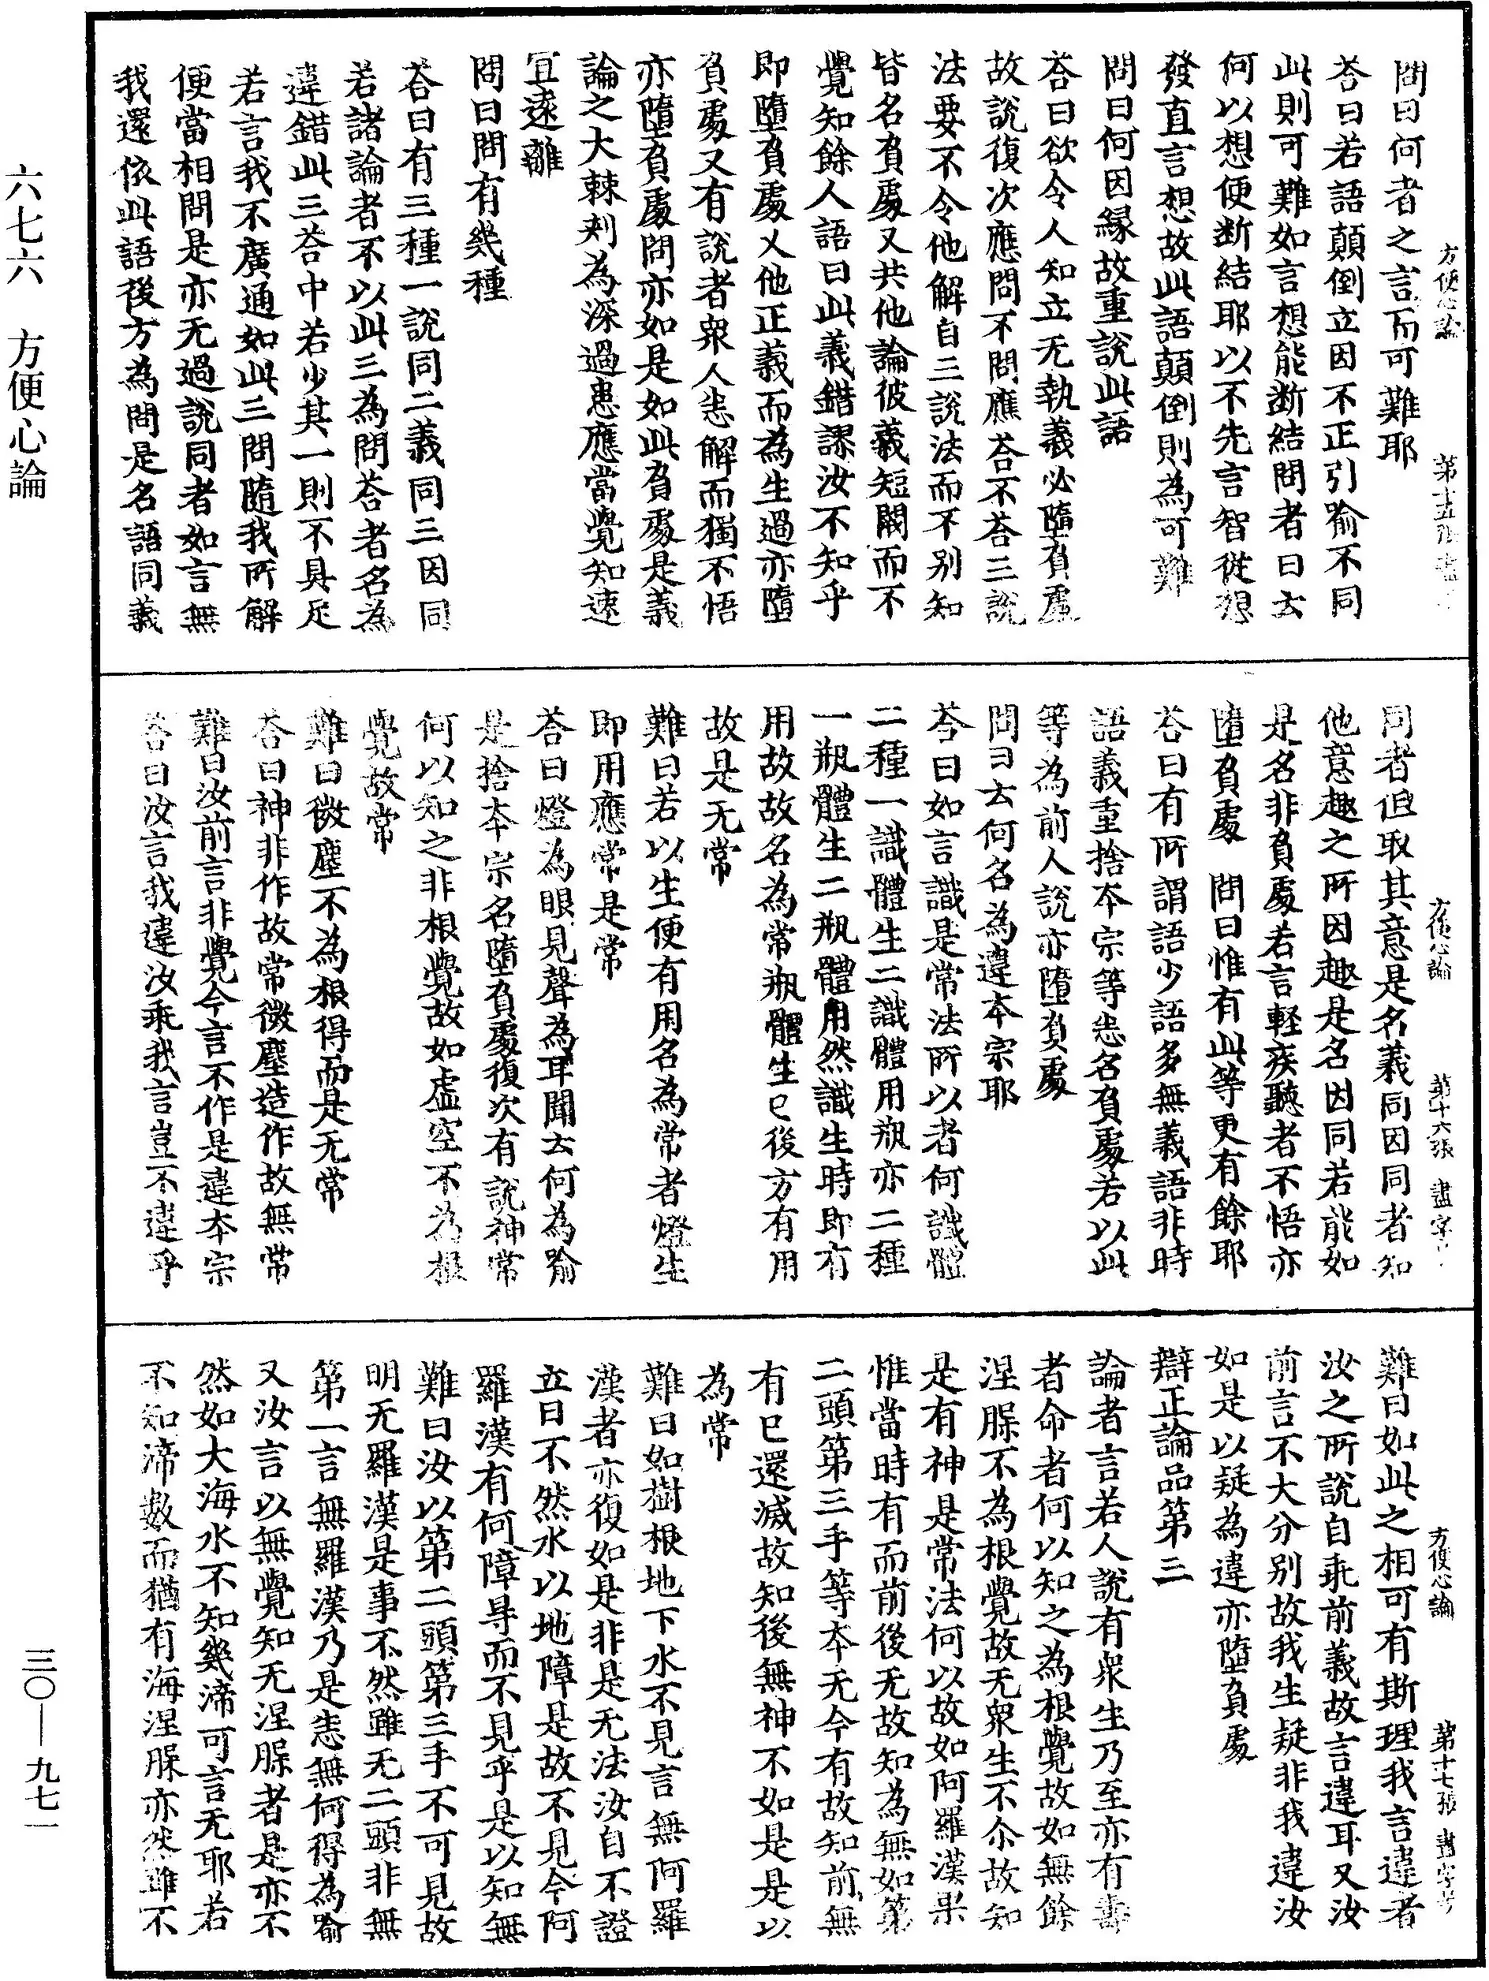 六七六　方便心論
三〇—九七一
方便心論　第十五張　盡
問曰何者之言而可難耶
荅曰若語顛倒立因不正引喻不同
此則可難如言想能斷結問者曰云
何以想便斷結耶以不先言智從想
發直言想故此語顛倒則為可難
問曰何因緣故重說此語
荅曰欲令人知立无執義必墮負處
故說復次應問不問應荅不荅三說
法要不令他解自三說法而不別知
皆名負處又共他論彼義短闕而不
覺知餘人語曰此義錯謬汝不知乎
即墮負處又他正義而為生過亦墮
負處又有說者衆人悉解而獨不悟
亦墮負處問亦如是如此負處是義
論之大棘刾為深過患應當覺知速
宜遠離
問曰問有幾種
荅曰有三種一說同二義同三因同
若諸論者不以此三為問荅者名為
違錯此三荅中若少其一則不具足
若言我不廣通如此三問隨我所解
便當相問是亦无過說同者如言無
我還依此語後方為問是名語同義
方便心論　第十六張　盡字号
同者但取其意是名義同因同者知
他意趣之所因趣是名因同若能如
是名非負處若言輕疾聽者不悟亦
墮負處　問曰惟有此等更有餘耶
荅曰有所謂語少語多無義語非時
語義重捨夲宗等悉名負處若以此
等為前人說亦墮負處
問曰云何名為違夲宗耶
荅曰如言識是常法所以者何識體
二種一識體生二識體用瓶亦二種
一瓶體生二瓶體用然識生時即有
用故故名為常瓶體生已後方有用
故是无常
難曰若以生便有用名為常者燈生
即用應常是常
荅曰燈為眼見聲為耳聞云何為喻
是捨夲宗名墮負處復次有說神常
何以知之非根覺故如虛空不為根
覺故常
難曰微塵不為根得而是无常
荅曰神非作故常微塵造作故無常
難曰汝前言非覺今言不作是違夲宗
荅曰汝言我違汝乖我言豈不違乎
方便心論　第十七張　盡字号
難曰如此之相可有斯理我言違者
汝之所說自乖前義故言違耳又汝
前言不大分別故我生疑非我違汝
如是以疑為違亦墮負處
辯正論品第三
論者言若人說有衆生乃至亦有壽
者命者何以知之為根覺故如無餘
涅䏶不為根覺故无衆生不尒故知
是有神是常法何以故如阿羅漢果
惟當時有而前後无故知為無如第
二頭第三手等夲无今有故知前無
有已還滅故知後無神不如是是以
為常
難曰如樹根地下水不見言無阿羅
漢者亦復如是非是无法汝自不證
立曰不然水以地障是故不見今阿
羅漢有何障㝵而不見乎是以知無
難曰汝以第二頭第三手不可見故
明无羅漢是事不然雖无二頭非無
第一言無羅漢乃是悉無何得為喻
又汝言以無覺知无涅䏶者是亦不
然如大海水不知幾渧可言无耶若
不知渧數而猶有海涅䏶亦然雖不